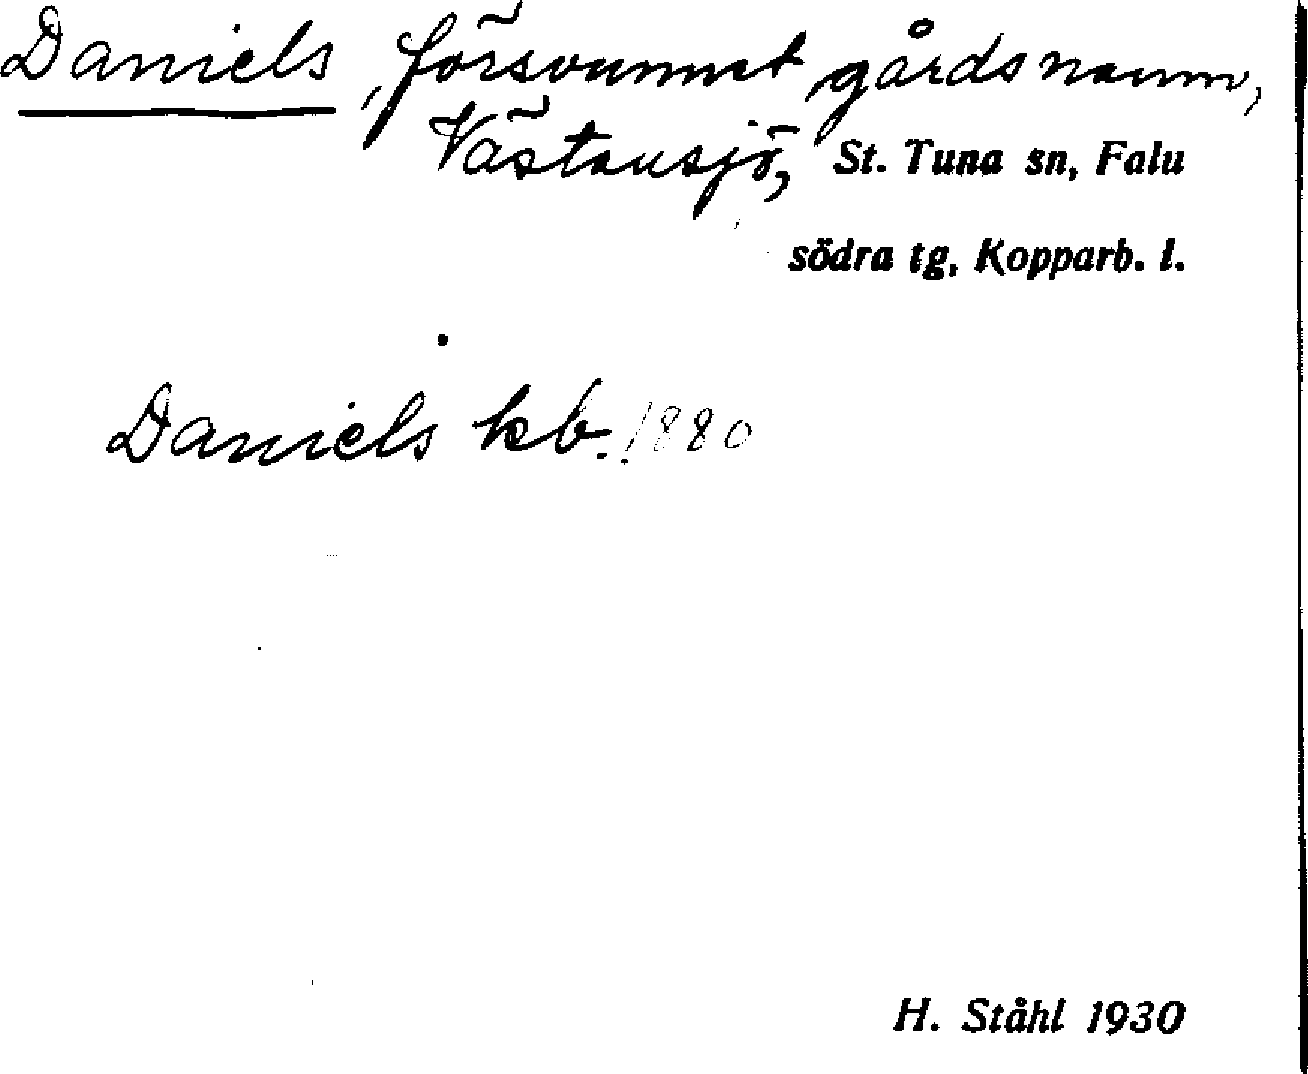 Daniels, försvunnet gårdsnamn,
Västansjö, St. Tuna sn, Falu
södra tg, Kopparb. l.
Daniels kb. 1880
H. Ståhl 1930